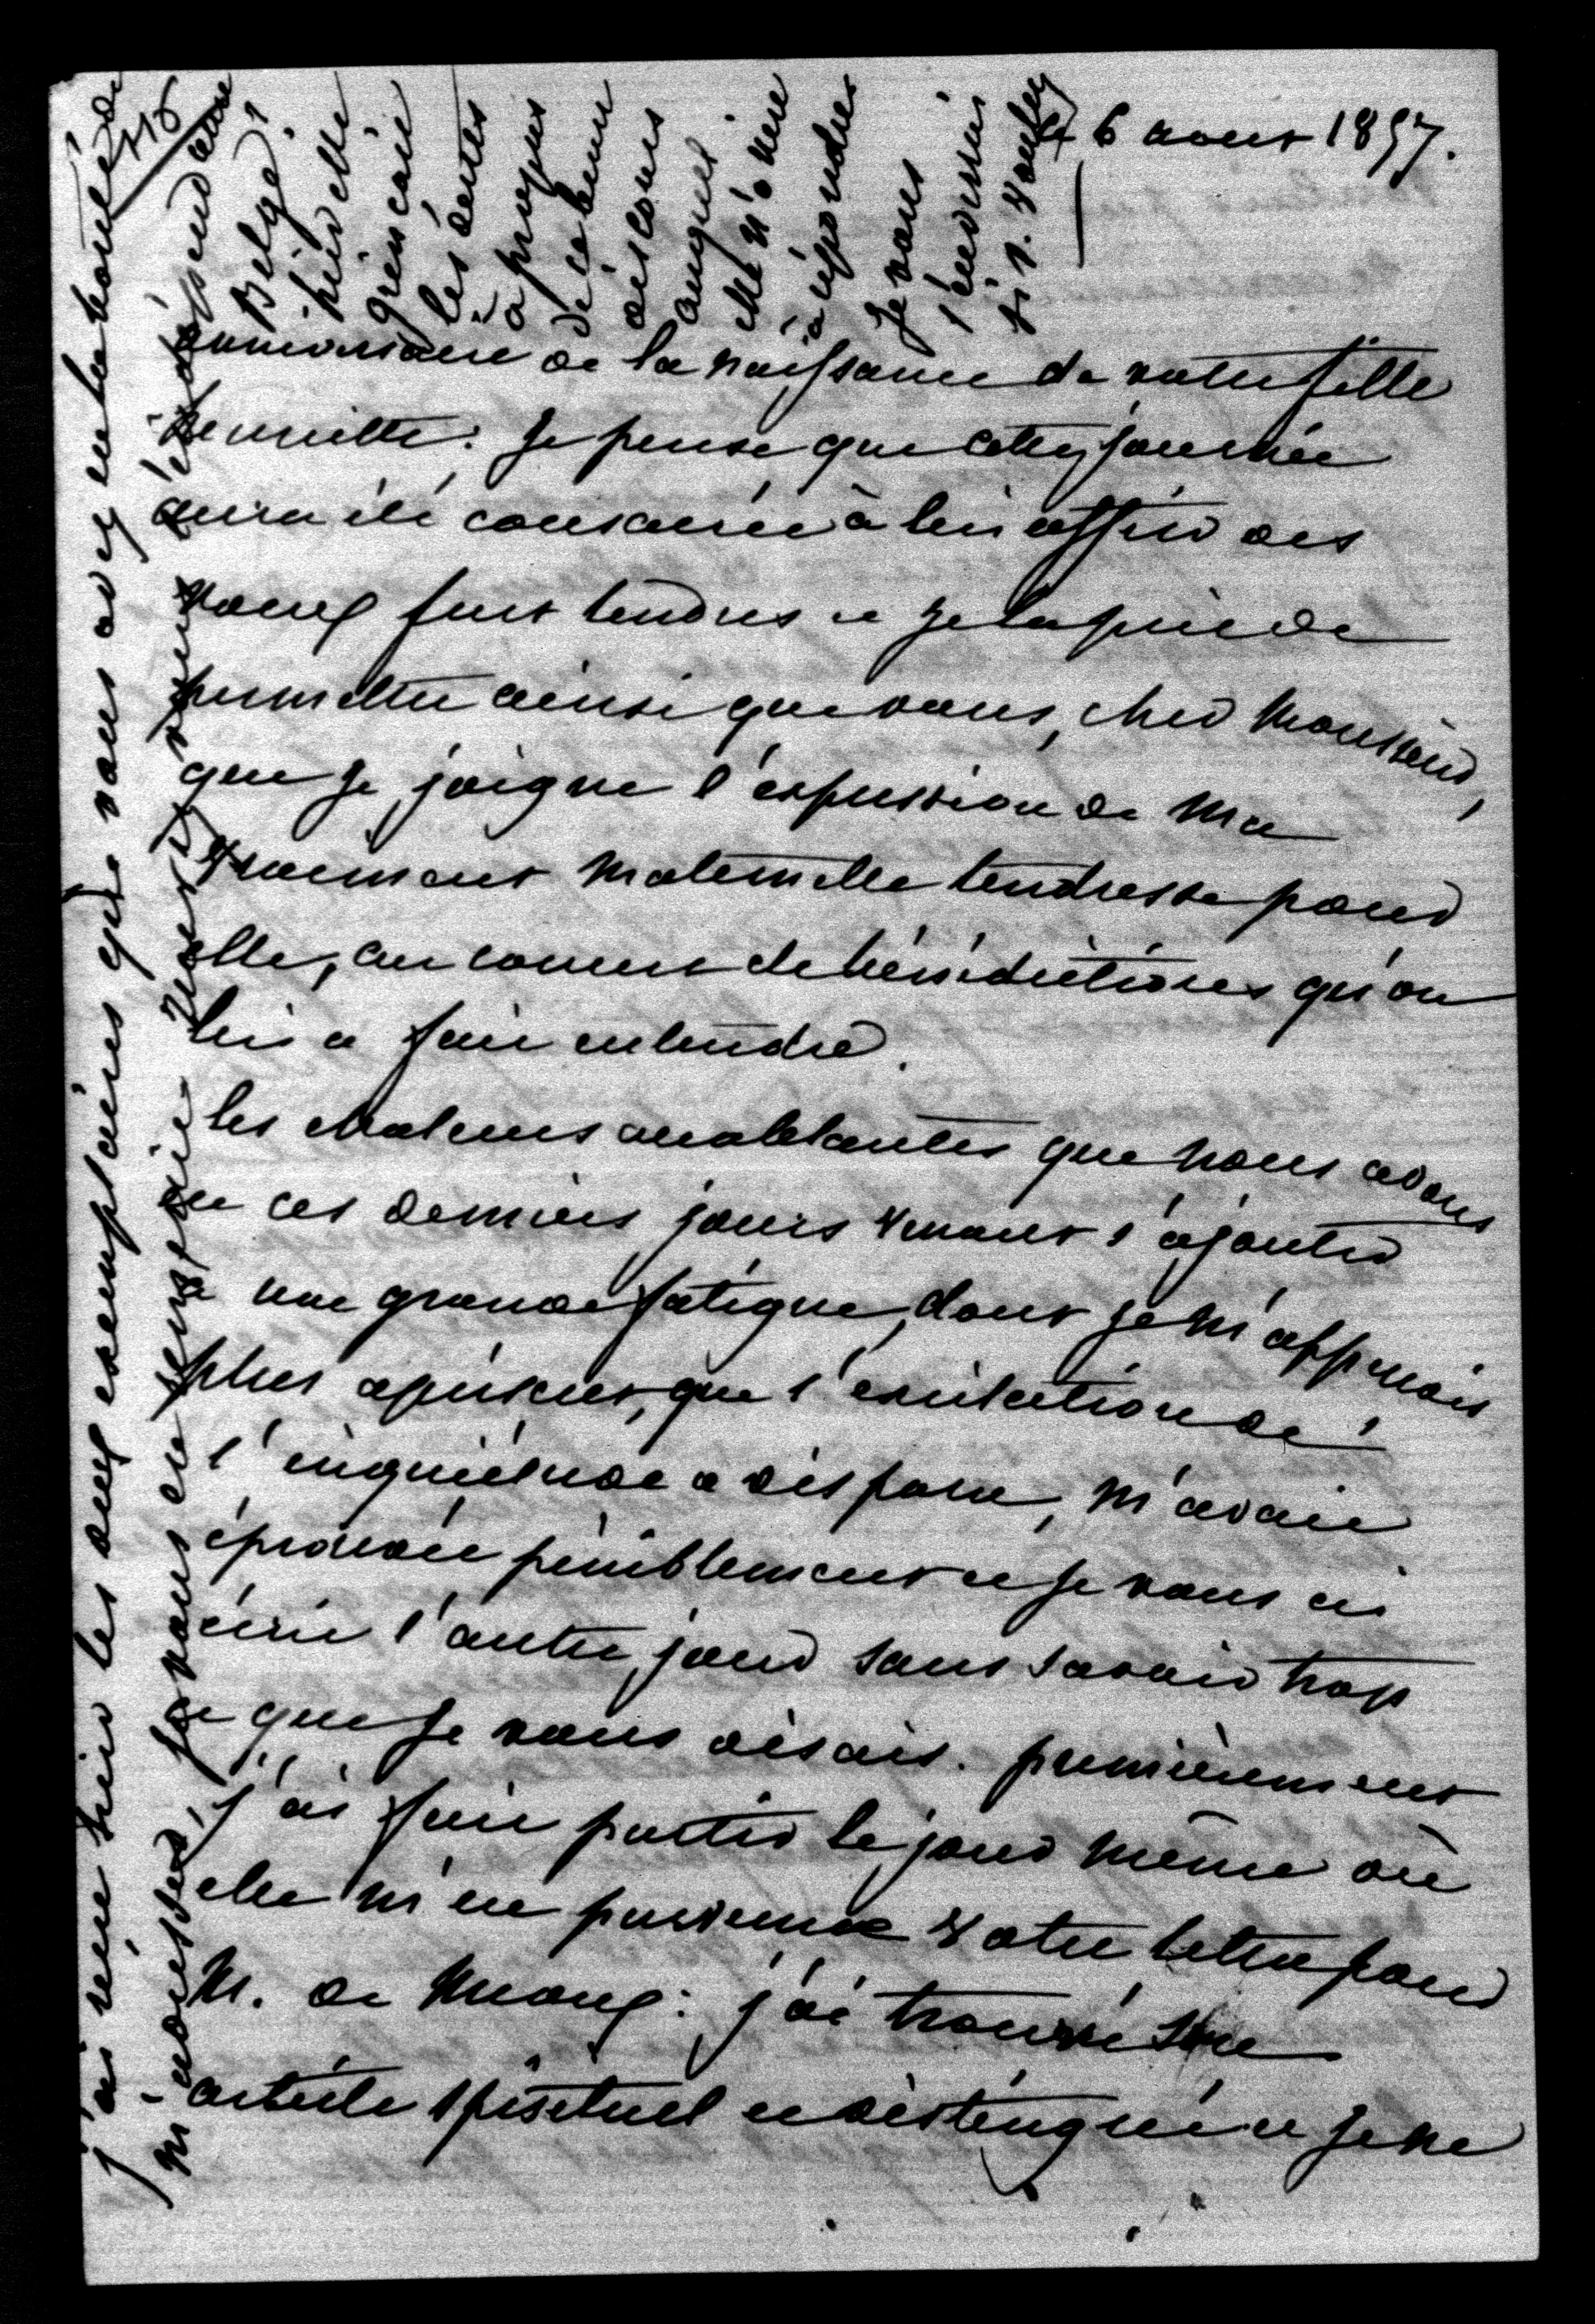 le 6 aout 1857.
anniversaire de la naissance de votre fille
henriette: Je pense que cette journée
aura été consacrée à lui offrir des
voeux fort tendres et je la prie de
permettre ainsi que vous, cher Monsieur,
que je joigne l'expression de ma
vraiment maternelle tendresse pour
elle, au concert de bénédictions qu'on
lui a fait entendre.
les chaleurs accablantes que nous avons
eu ces derniers jours venant s'ajouter
à une grande fatigue, dont je m'apperçois
plus à présent, que l'excitation de
l'inquiétude a disparu, m'avait
éprouvée péniblement et je vous ai
écrit l'autre jour sans savoir trop
ce que je vous disais. premièrement
j'ai fait partir le jour même où
elle m'est parvenue votre lettre pour
M. de
article spirituel et distingué et je ne
J'ai reçu hier les deux exemplaires que vous avez eu la bonté de
m'adresser, je vous en remercie
l'indépendance
Belge
grien caire
les dents
à propos
de ce beau
discours
auquel
elle n'ose
répondre
Je vous
115